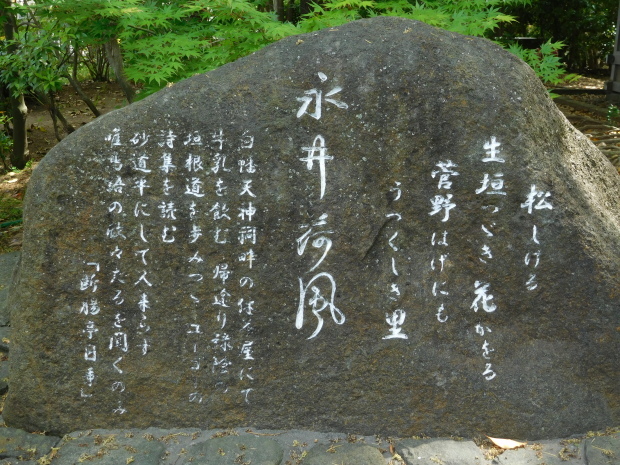 松しげる
生垣つゞき 花かをる
菅野はげにも
うつくしき里
永井荷風
白幡天神祠畔の休茶屋にて
牛乳を飲む 帰途り緑陰の
垣根道を歩みつゝユーゴーの
詩集を読む
砂道平にして人来らず
唯鳥語の欣々たるを聞くのみ
「断腸亭日乗」